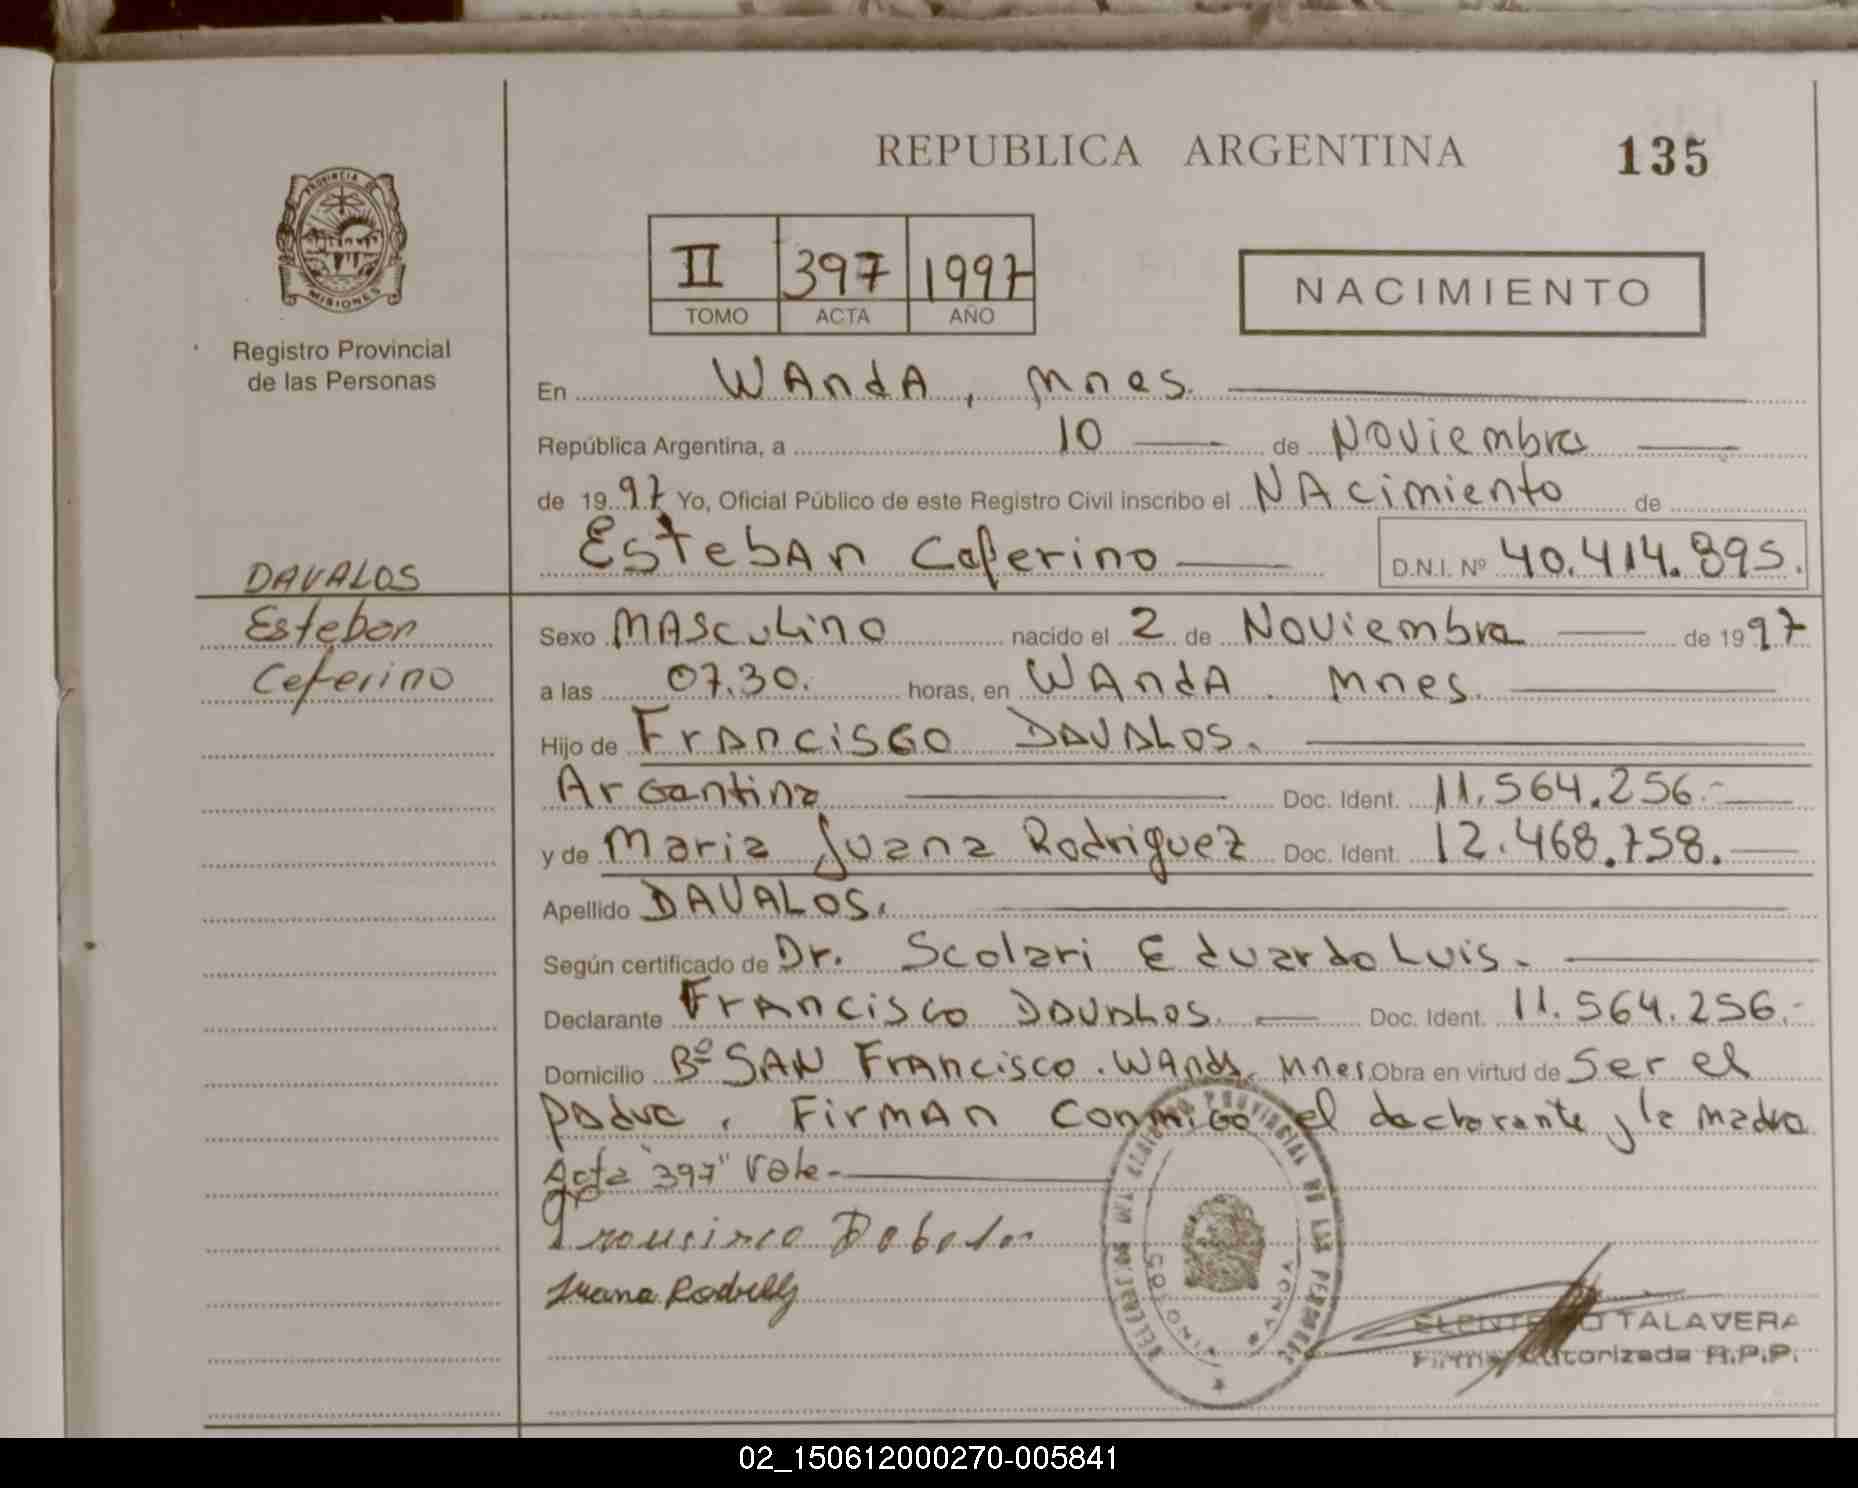 REPUBLICA ARGENTINA
135
PROVINCIA DE
MISIONES
Registro Provincial
de las Personas
II 397 1997
TOMO ACTA AÑO
NACIMIENTO
En WAndA, Mnes.
República Argentina, a 10 de Noviembre
de 1997 Yo, Oficial Público de este Registro Civil inscribo el NAcimiento de
EstebAn Ceferino D.N.I. Nº 40.414.895.
DAVALOS
Esteban
Ceferino
Sexo MAsculino nacido el 2 de Noviembre de 1997
a las 07.30. horas, en WAndA. Mnes.
Hijo de Francisco DAVALOS.
Argentina Doc. Ident. 11.564.256.-
y de Maria Juana Rodriguez Doc. Ident. 12.468.758.
Apellido DAVALOS.
Según certificado de Dr. Scolari Eduardo Luis.
Declarante Francisco DAVALOS. Doc. Ident. 11.564.256.-
Domicilio Bº SAN Francisco. WAnda, Mnes. Obra en virtud de Ser el
padre. FirmAn conmigo el declarante y la madre
Acta "397" Vale-
Juana
PROVINCIAL DE LAS PERSONAS
WANDA
TALAVERA
Firma Autorizada R.P.P.
02_150612000270-005841